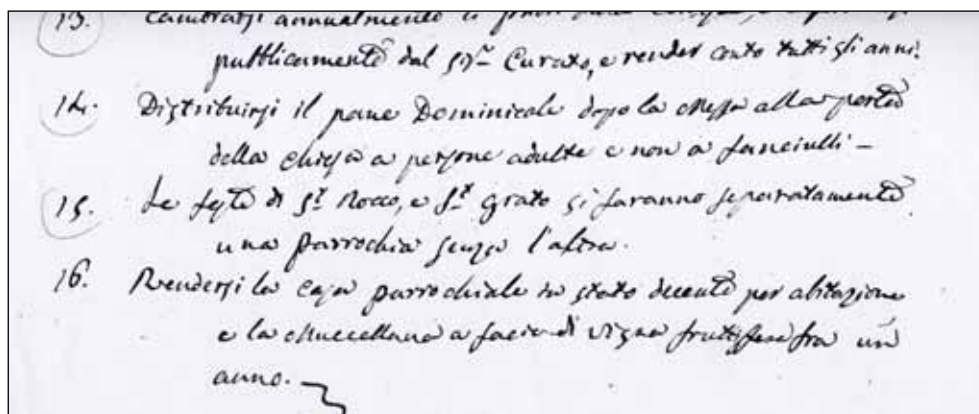 13. Cambiarsi annualmente li priori
pubblicamente dal Sigr Curato, e render conto tutti gli anni.
14. Distribuirsi il pane Dominicale dopo la Messa alla porta
della chiesa a persone adulte e non a fanciulli –
15. Le feste di St Rocco, e St grato si faranno separatamente
una parrochia senza l'altra.
16. Rendersi la casa parrochiale in stato decente per abitazione
e la a di vigna fruttifera fra un
anno.